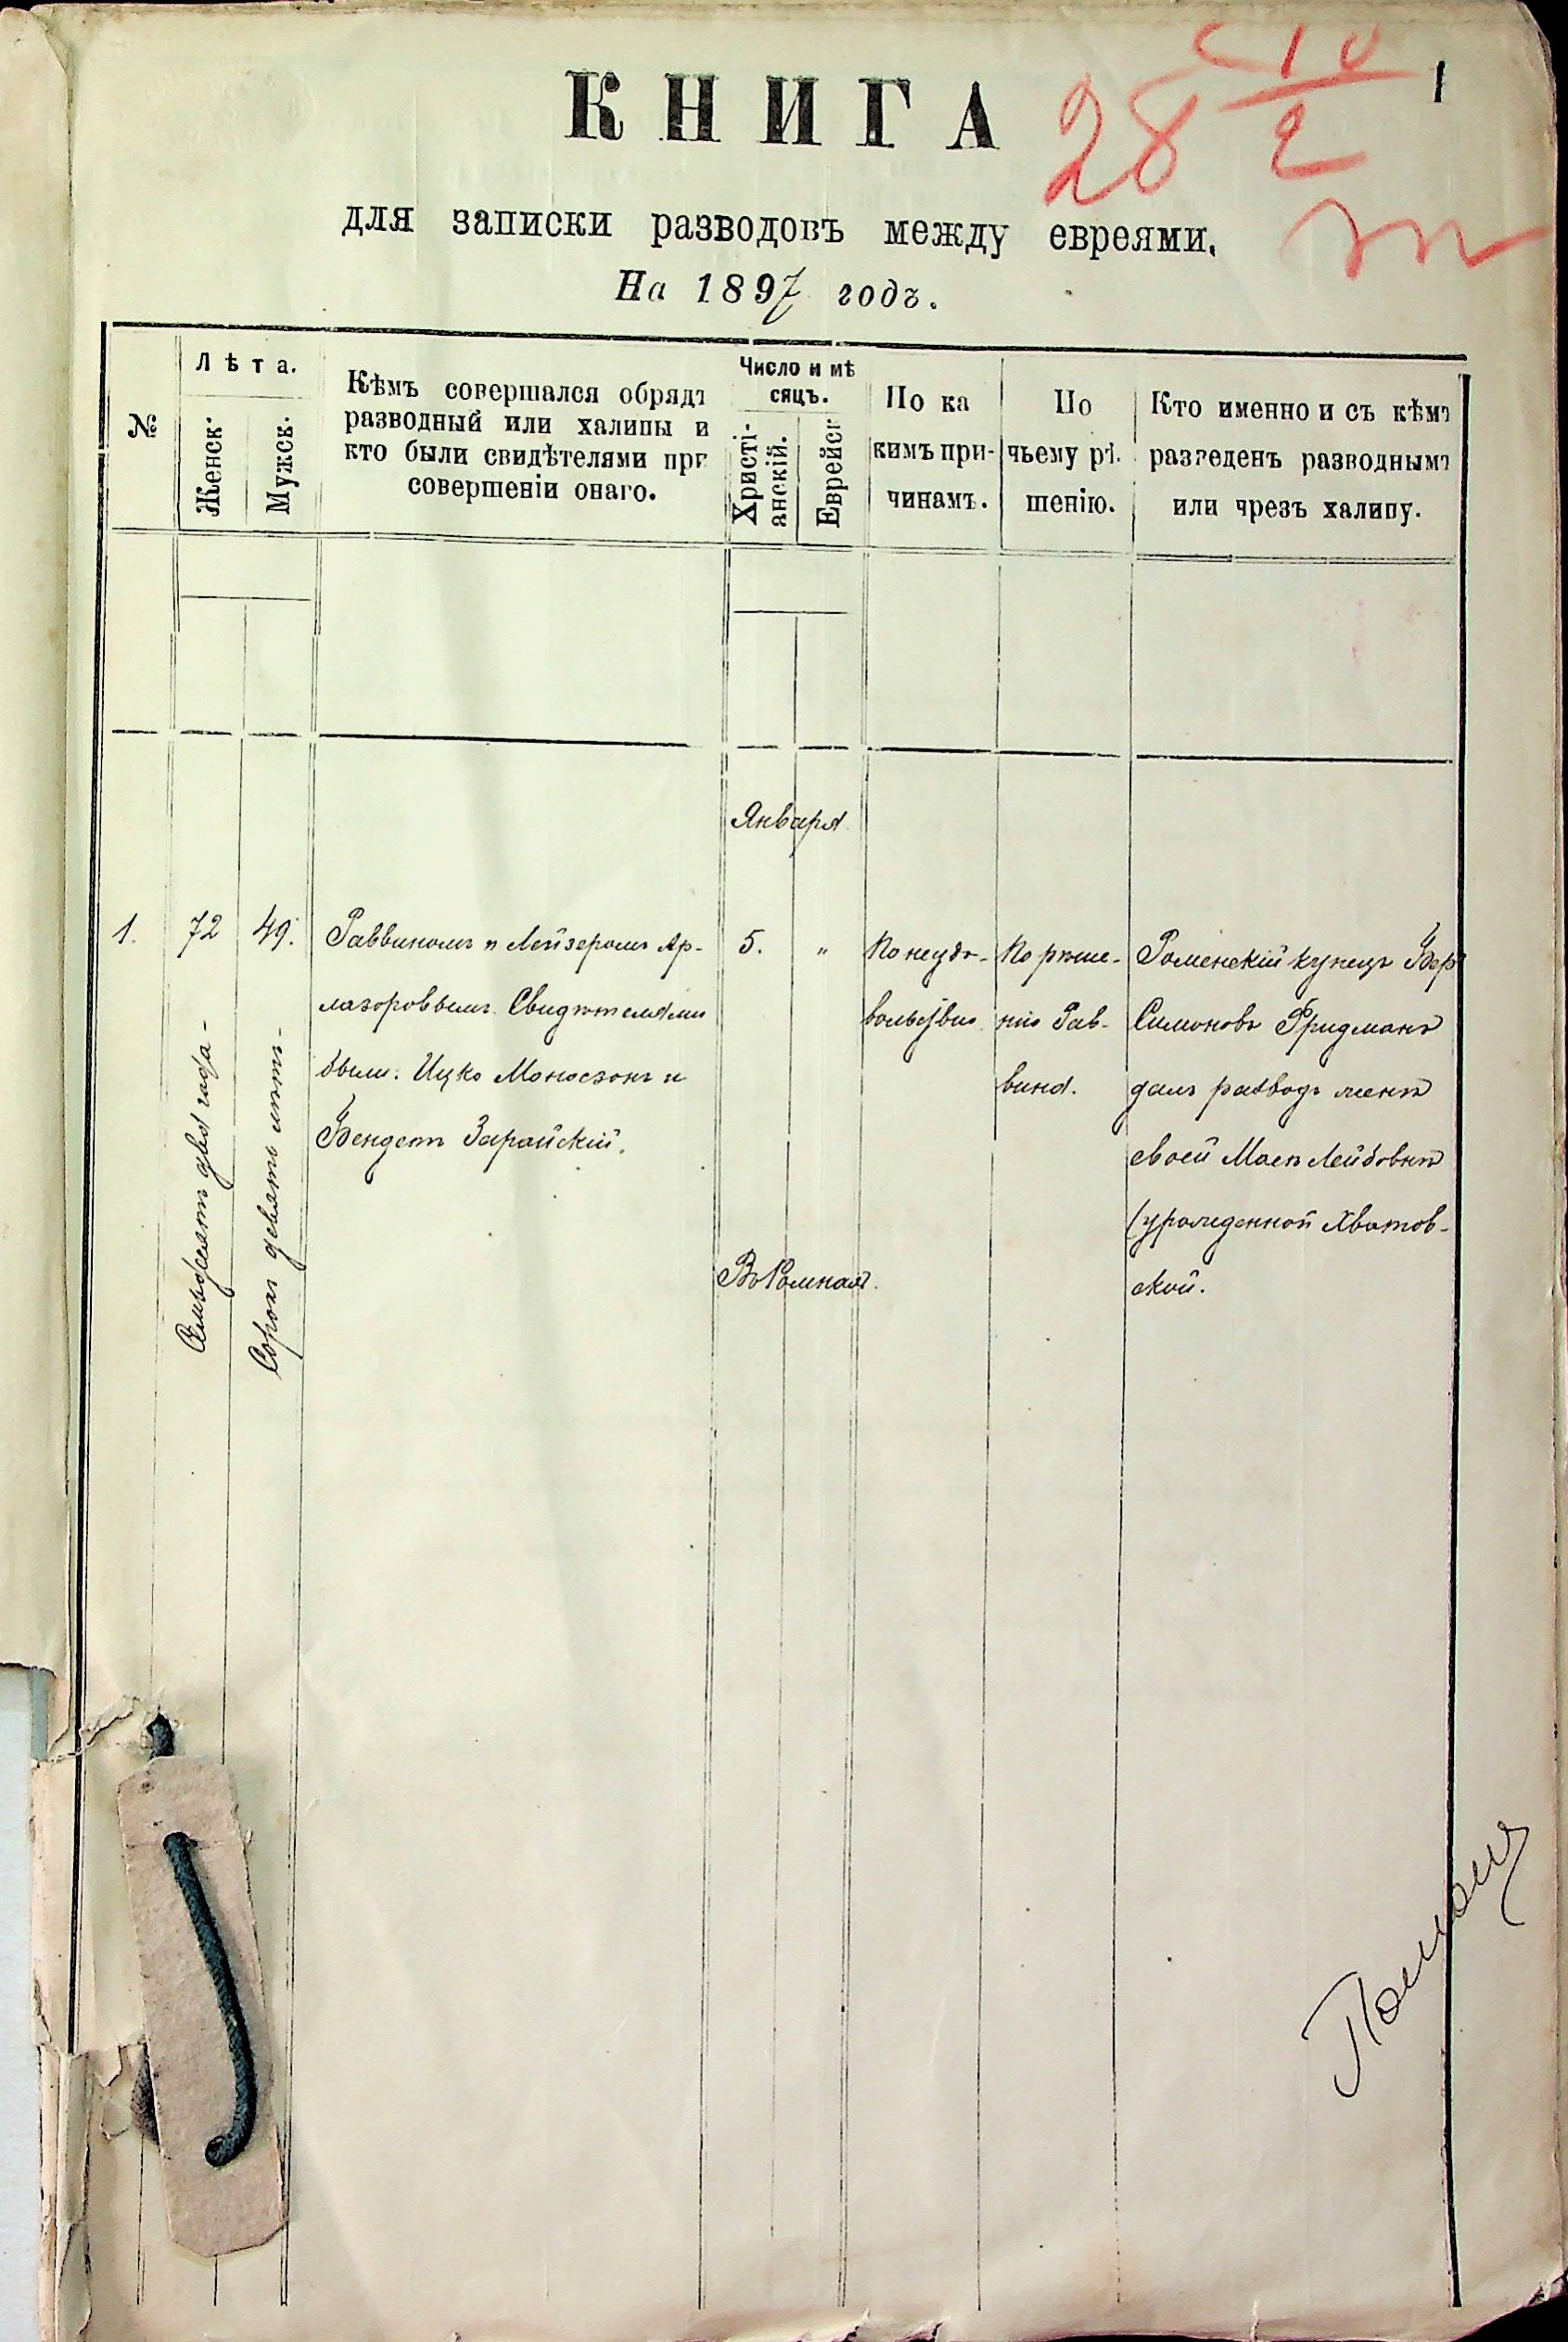 1
28 10/2
КНИГА
для записки разводовъ между евреями.
На 1897 годъ.
№
Лѣта.
Женск:
Мужск.
Кѣмъ совершался обрядъ
разводный или халипы и
кто были свидѣтелями при
совершеніи онаго.
Число и мѣ
сяцъ.
Христі-
анскій.
Еврейск
По ка
кимъ при-
чинамъ.
По
чьему рѣ.
шенію.
Кто именно и съ кѣмъ
разведенъ разводнымъ
или чрезъ халипу.
Января
1.
72
Семьдесятъ два года-
49.
Сорокъ девять лѣтъ-
Раввиномъ Лейзеромъ Ар-
лазоровымъ. Свидѣтелями
были: Ицко Моносзонъ и
Бендетъ Зарайскій.
5.
"
Въ Ромнахъ.
По неудо-
вольствію
По рѣше-
нію Рав-
вина.
Роменскій купецъ Бер
Симоновъ Фридманъ
далъ разводъ женѣ
своей Лейбовнѣ
(урожденной Хватов-
ской.